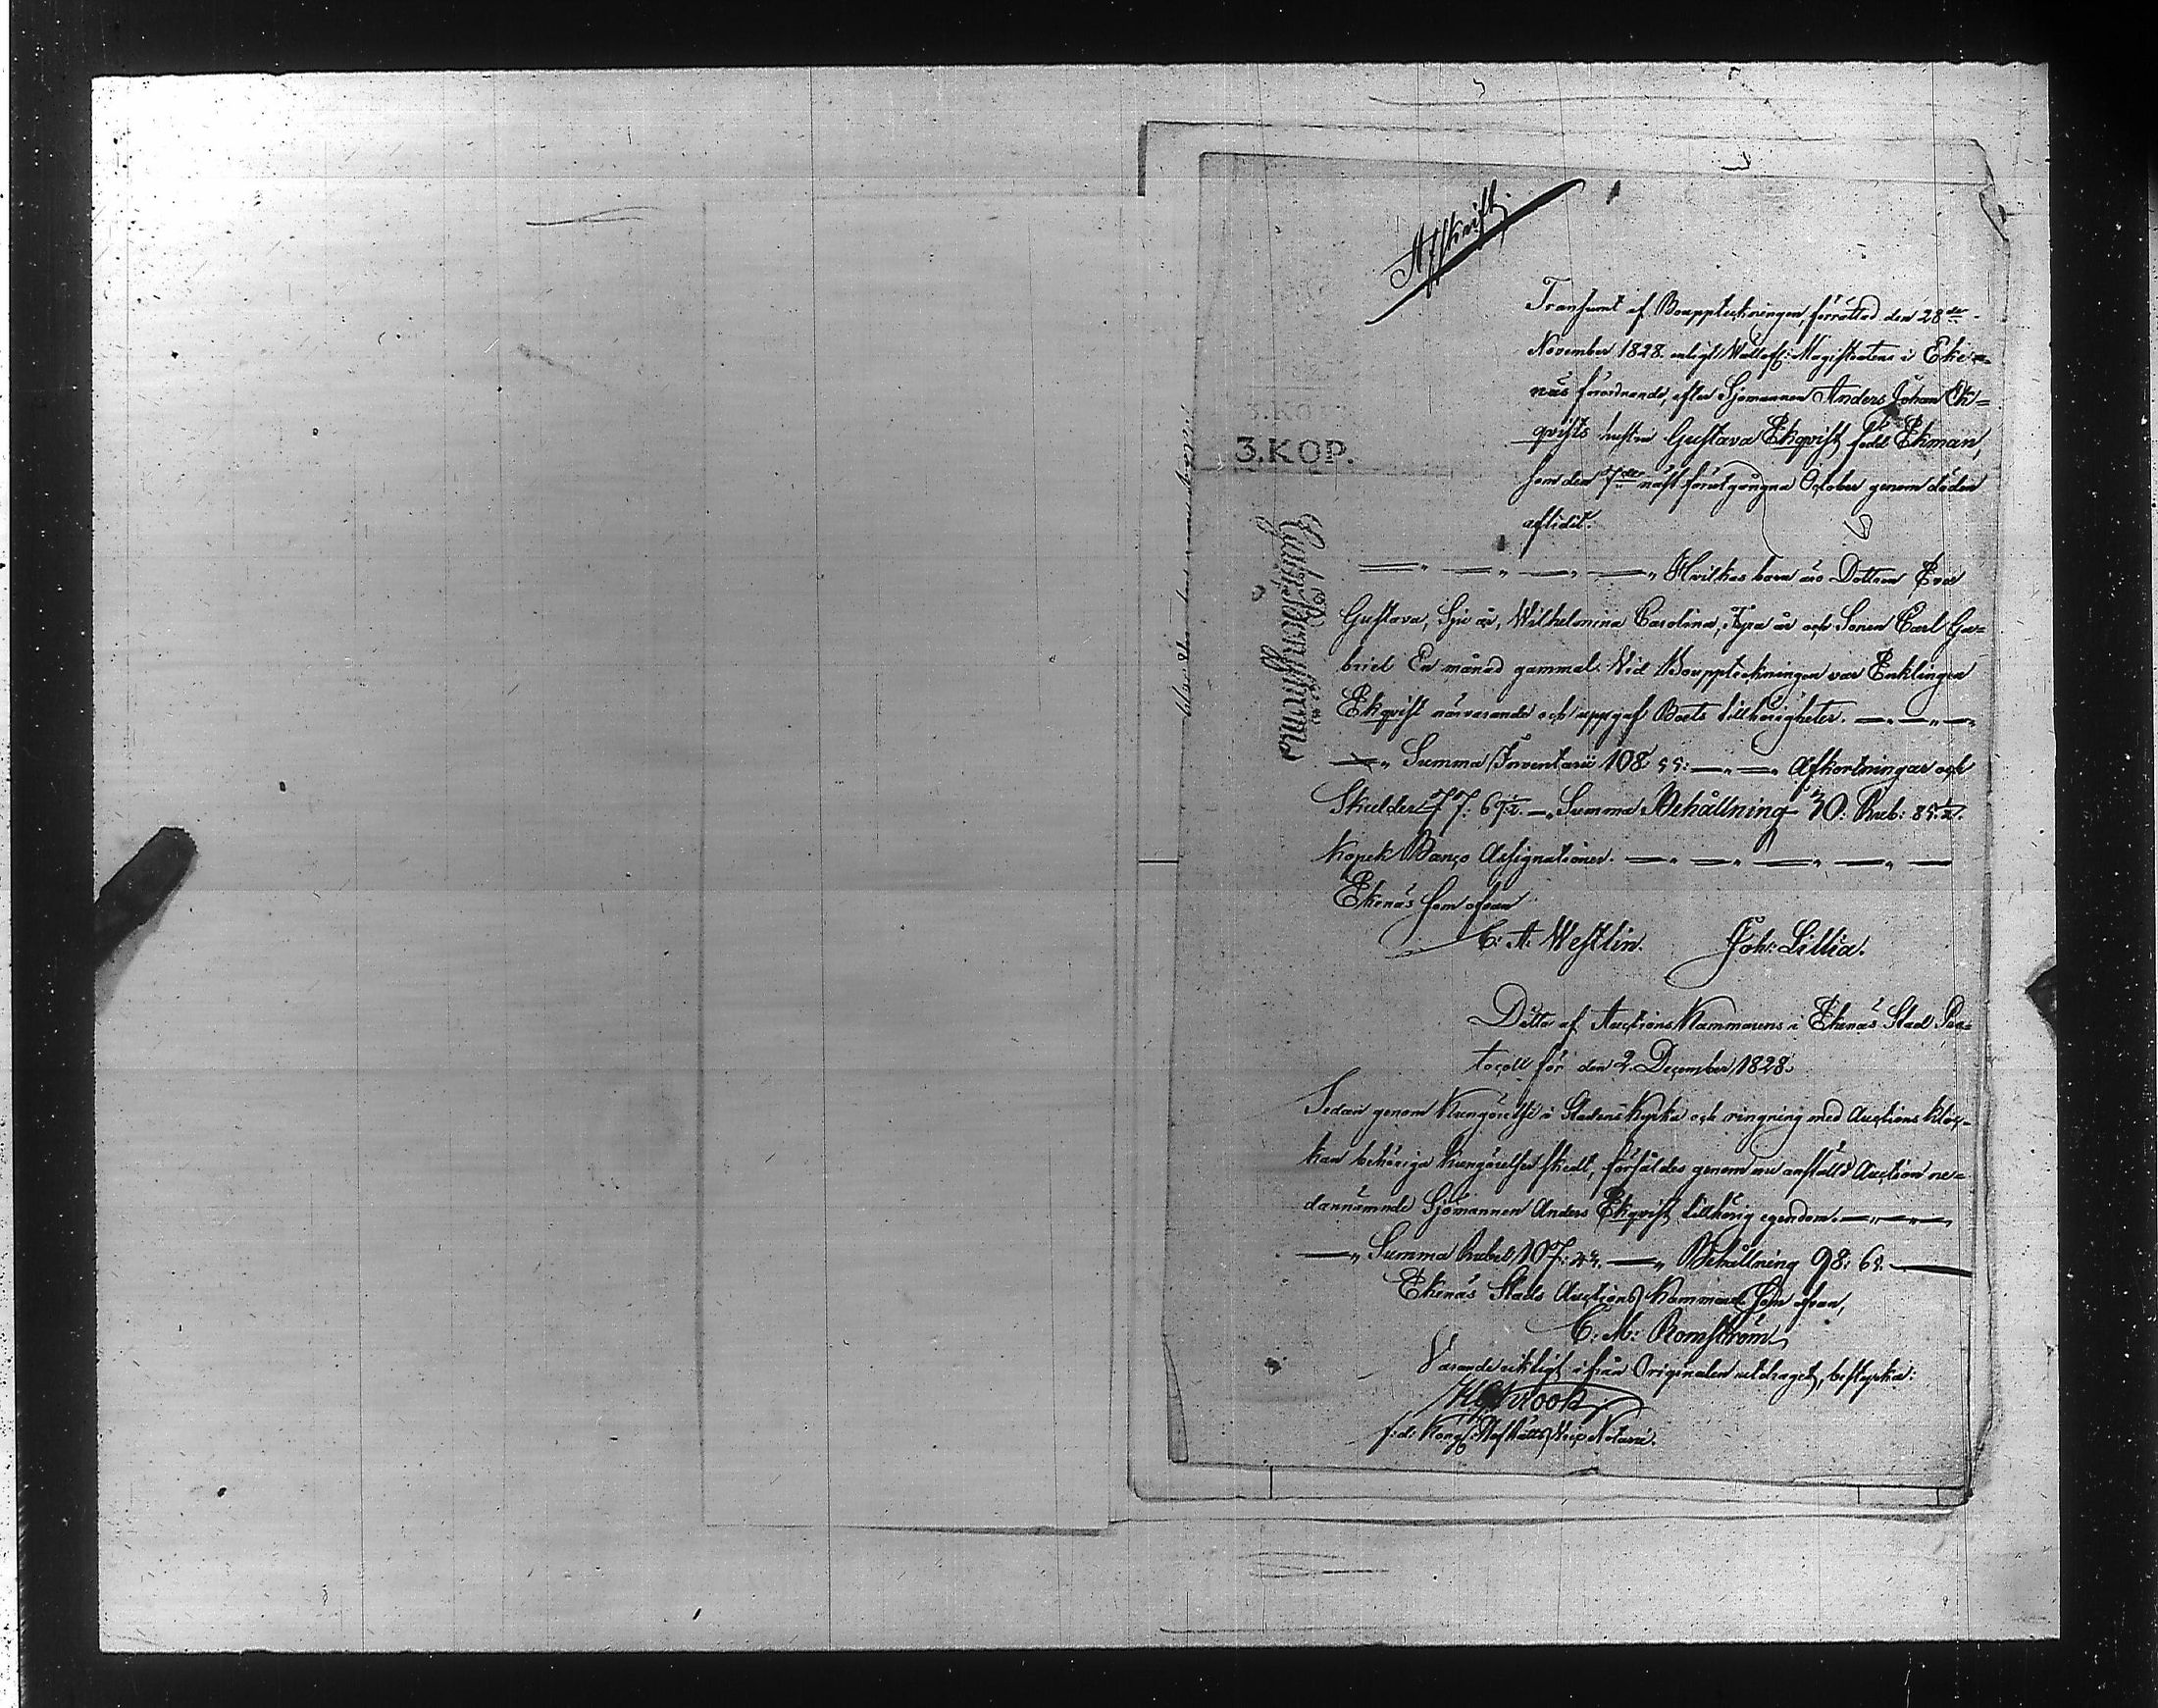 Afskrift.
Transumt af Bouppteckningen, förrättad den 28de
November 1828. enligt Wällofl: Magistratens i Eke=
näs förordnande, efter Sjömannen Anders Johan Ek=
qvists hustru Gustava Ekqvist född Ekman,
som den 7de näst förutgångne October genom döden
aflidit.
3.KOP.
Hvilkas barn äro Dottren Eva
Gustava, Sju år, Wilhelmina Carolina, år och Sonen Carl Ga=
briel En månad gammal. Vid Bouppteckningen var Enklingen
Ekqvist närvarande och uppgaf Boets tillhörigheter.
Summa Inventarii 108: 55: Afkortningar och
Skulder 77: 69½. Summa Behållning 30. Rub: 85.½.
Kopek Banco Assignationer.
Ekenäs som ofvan
C: A: Westlin. Joh: Lillia.
Dito af Auctions Kammarens i Ekenäs Stad Pro=
tocoll för den 2. December 1828.
Sedan genom Kungörelse i Stadens Kyrka och ringning med Auctions kloc=
kan behöriga kungörelser skedt, försåldes genom nu anstäld Auction ne=
dannämnde Sjömannen Anders Ekqvist tillhörig egendom.
Summa Rubel 107: Behållning 98: 65.
Ekenäs Stads Auctions Kammare som ofvan,
C: M: Romström
Varande riktigt ifrån Originalen utdraget, bestyrka:
HGKrook